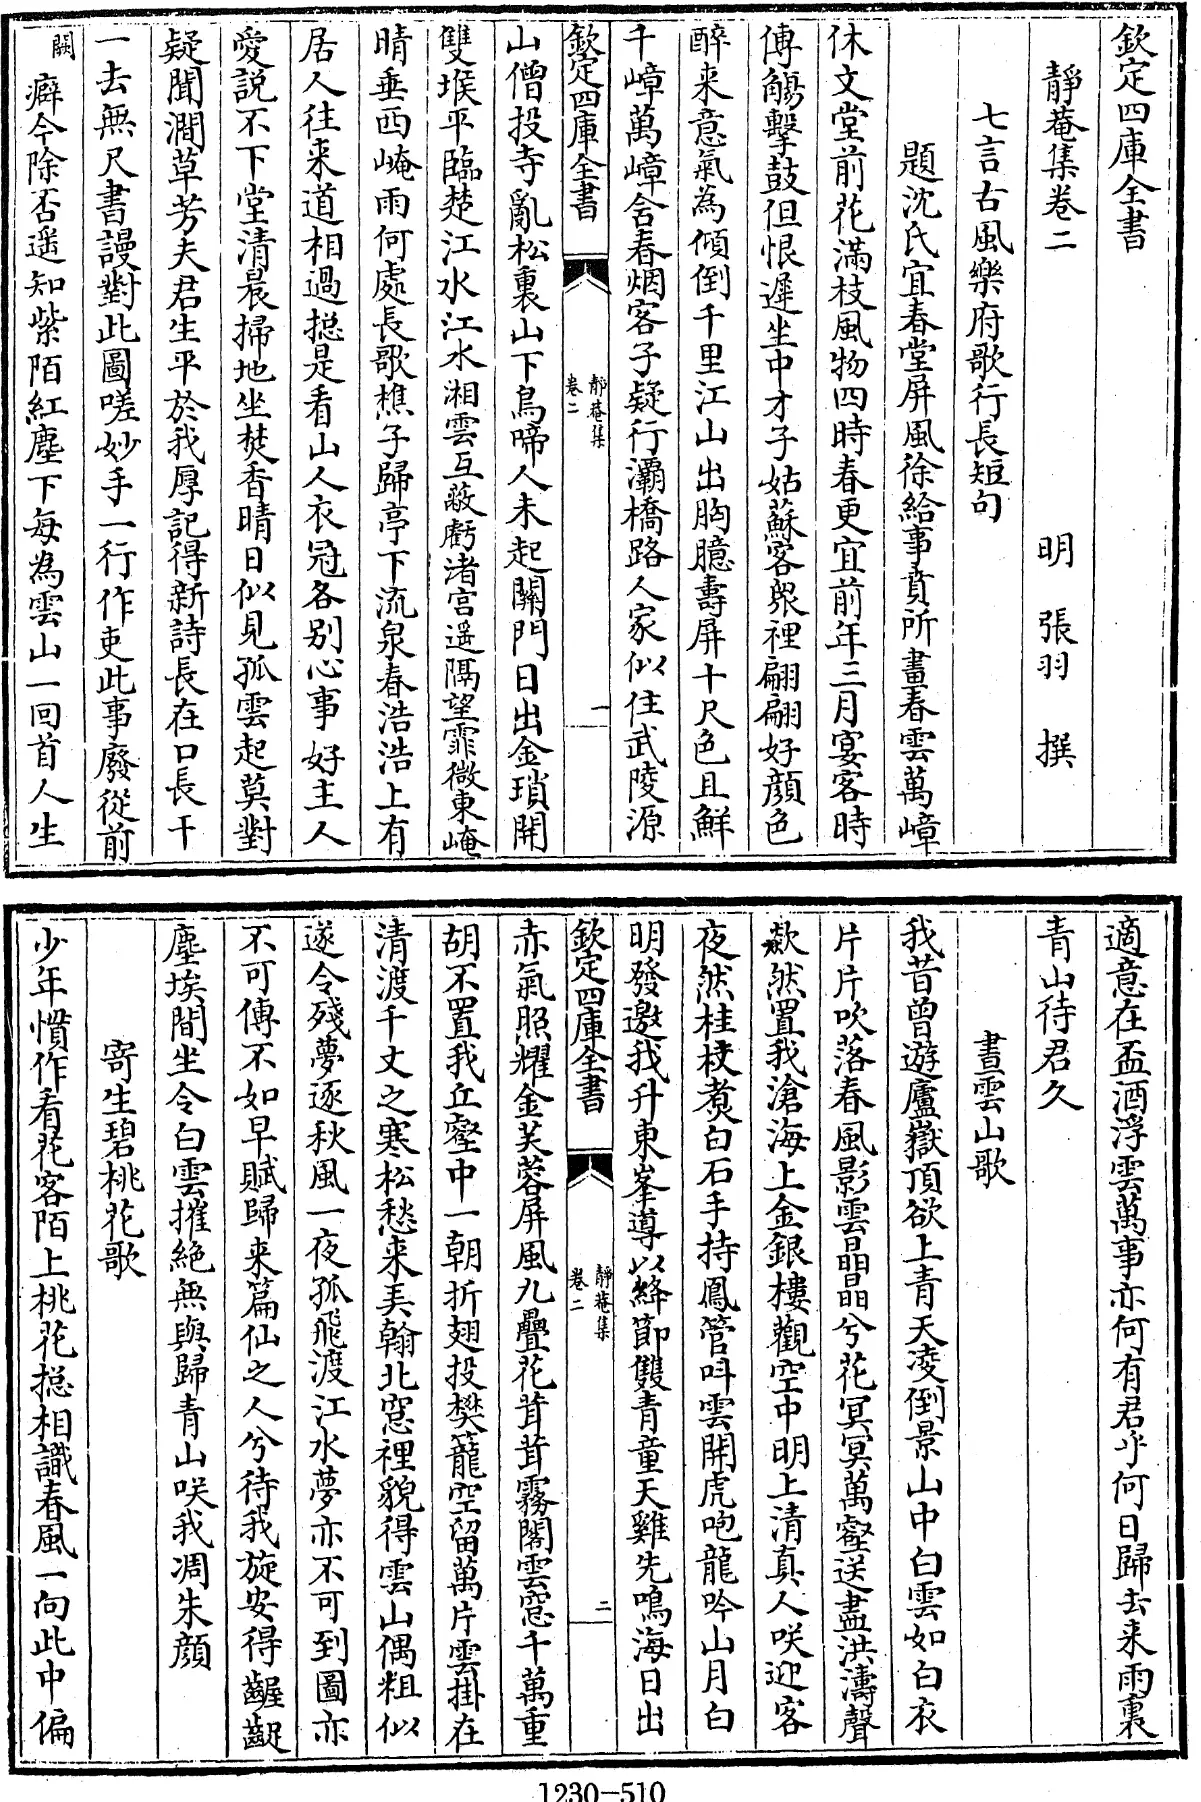 欽定四庫全書
靜菴集卷二
明 張羽 撰
七言古風樂府歌行長短句
題沈氏宜春堂屏風徐給事賁所畫春雲萬嶂
休文堂前花滿枝風物四時春更宜前年三月宴客時
傳觴擊鼓但恨遲坐中才子姑蘇客衆裡翩翩好顏色
醉来意氣為傾倒千里江山出胸臆壽屏十尺色且鮮
千嶂萬嶂含春烟客子疑行灞橋路人家似住武陵源
欽定四庫全書
靜菴集
卷二
一
山僧投寺亂松裏山下鳥啼人未起關門日出金瑣開
雙堠平臨楚江水江水湘雲互蔽虧渚宮遥隔望霏微東崦
晴垂西崦雨何處長歌樵子歸亭下流泉春浩浩上有
居人往来道相過捴是看山人衣冠各别心事好主人
愛説不下堂清晨掃地坐焚香晴日似見孤雲起莫對
疑聞澗草芳夫君生平於我厚記得新詩長在口長干
一去無尺書謾對此圖嗟妙手一行作吏此事廢從前
闕癖今除否遥知紫陌紅塵下每為雲山一回首人生
適意在盃酒浮雲萬事亦何有君乎何日歸去来雨裏
青山待君久
畫雲山歌
我昔曾遊廬嶽頂欲上青天凌倒景山中白雲如白衣
片片吹落春風影雲晶晶兮花冥冥萬壑送盡洪濤聲
歘然置我滄海上金銀樓觀空中明上清真人咲迎客
夜然桂枝煮白石手持鳳管呌雲開虎咆龍吟山月白
明發邀我升東峯導以絳節雙青童天雞先鳴海日出
欽定四庫全書
靜菴集
卷二
二
赤氣照耀金芙蓉屏風九疊花茸茸霧閣雲窓千萬重
胡不置我丘壑中一朝折翅投樊籠空留萬片雲掛在
清渡千丈之寒松愁来弄翰北窓裡貌得雲山偶粗似
遂令殘夢逐秋風一夜孤飛渡江水夢亦不可到圖亦
不可傳不如早賦歸来篇仙之人兮待我旋安得齷齪
塵埃間坐令白雲摧絶無與歸青山咲我凋朱顏
寄生碧桃花歌
少年慣作看花客陌上桃花捴相識春風一向此中偏
1230-510